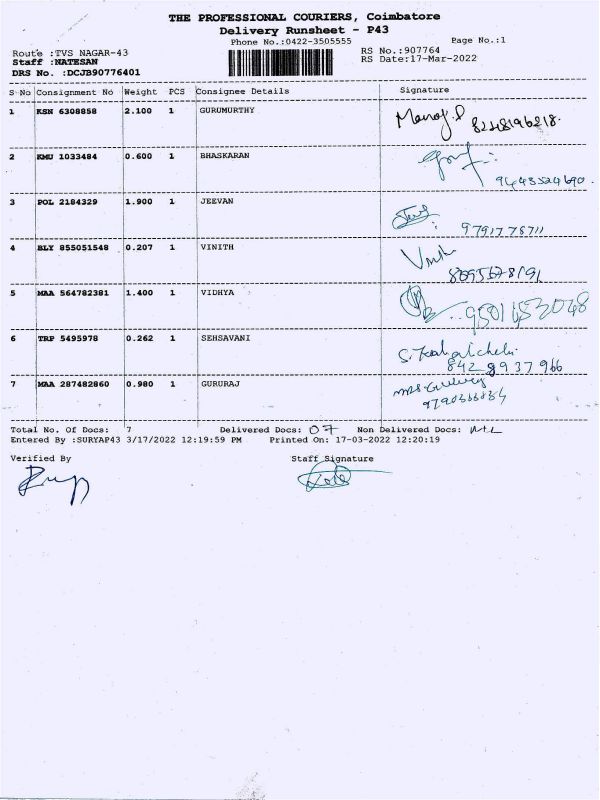 THE PROFESSIONAL COURIERS, Coimbatore
Delivery Runsheet - P43
Phone No.:0422-3505555 Page No.:1
Route :TVS NAGAR-43 RS No.:907764
Staff :NATESAN RS Date:17-Mar-2022
DRS No. :DCJB90776401
S No Consignment No Weight PCS Consignee Details Signature
1 KSN 6308858 2.100 1 GURUMURTHY Manoj.P
8248196218.
2 KMU 1033484 0.600 1 BHASKARAN
9443524690.
3 POL 2184329 1.900 1 JEEVAN
9791778711
4 BLY 855051548 0.207 1 VINITH Vinith
5 MAA 564782381 1.400 1 VIDHYA
6 TRP 5495978 0.262 1 SEHSAVANI
842 9937966
7 MAA 287482860 0.980 1 GURURAJ
Total No. Of Docs: 7 Delivered Docs: 07 Non Delivered Docs: NIL
Entered By :SURYAP43 3/17/2022 12:19:59 PM Printed On: 17-03-2022 12:20:19
Verified By Staff Signature